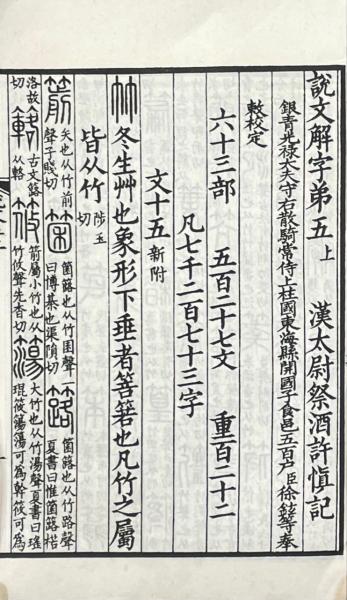 說文解字弟五上 漢太尉祭酒許慎記
銀青光祿大夫守右散騎常侍上柱國東海縣開國子食邑五百戶臣徐鉉等奉
敕校定
六十三部 五百二十七文 重百二十二
凡七千二百七十三字
文十五 新附
竹 冬生艸也象形下垂者箁箬也凡竹之屬
皆从竹 陟玉切
箭 矢也从竹前聲子賤切 箘 箘簬也从竹囷聲一曰博棊也渠隕切 簬 箘簬也从竹路聲夏書曰惟箘簬楛
洛故切 簵 古文簬从輅 筱 箭屬小竹也从竹攸聲先杳切 簜 大竹也从竹湯聲夏書曰瑤琨筱簜簜可為幹筱可為